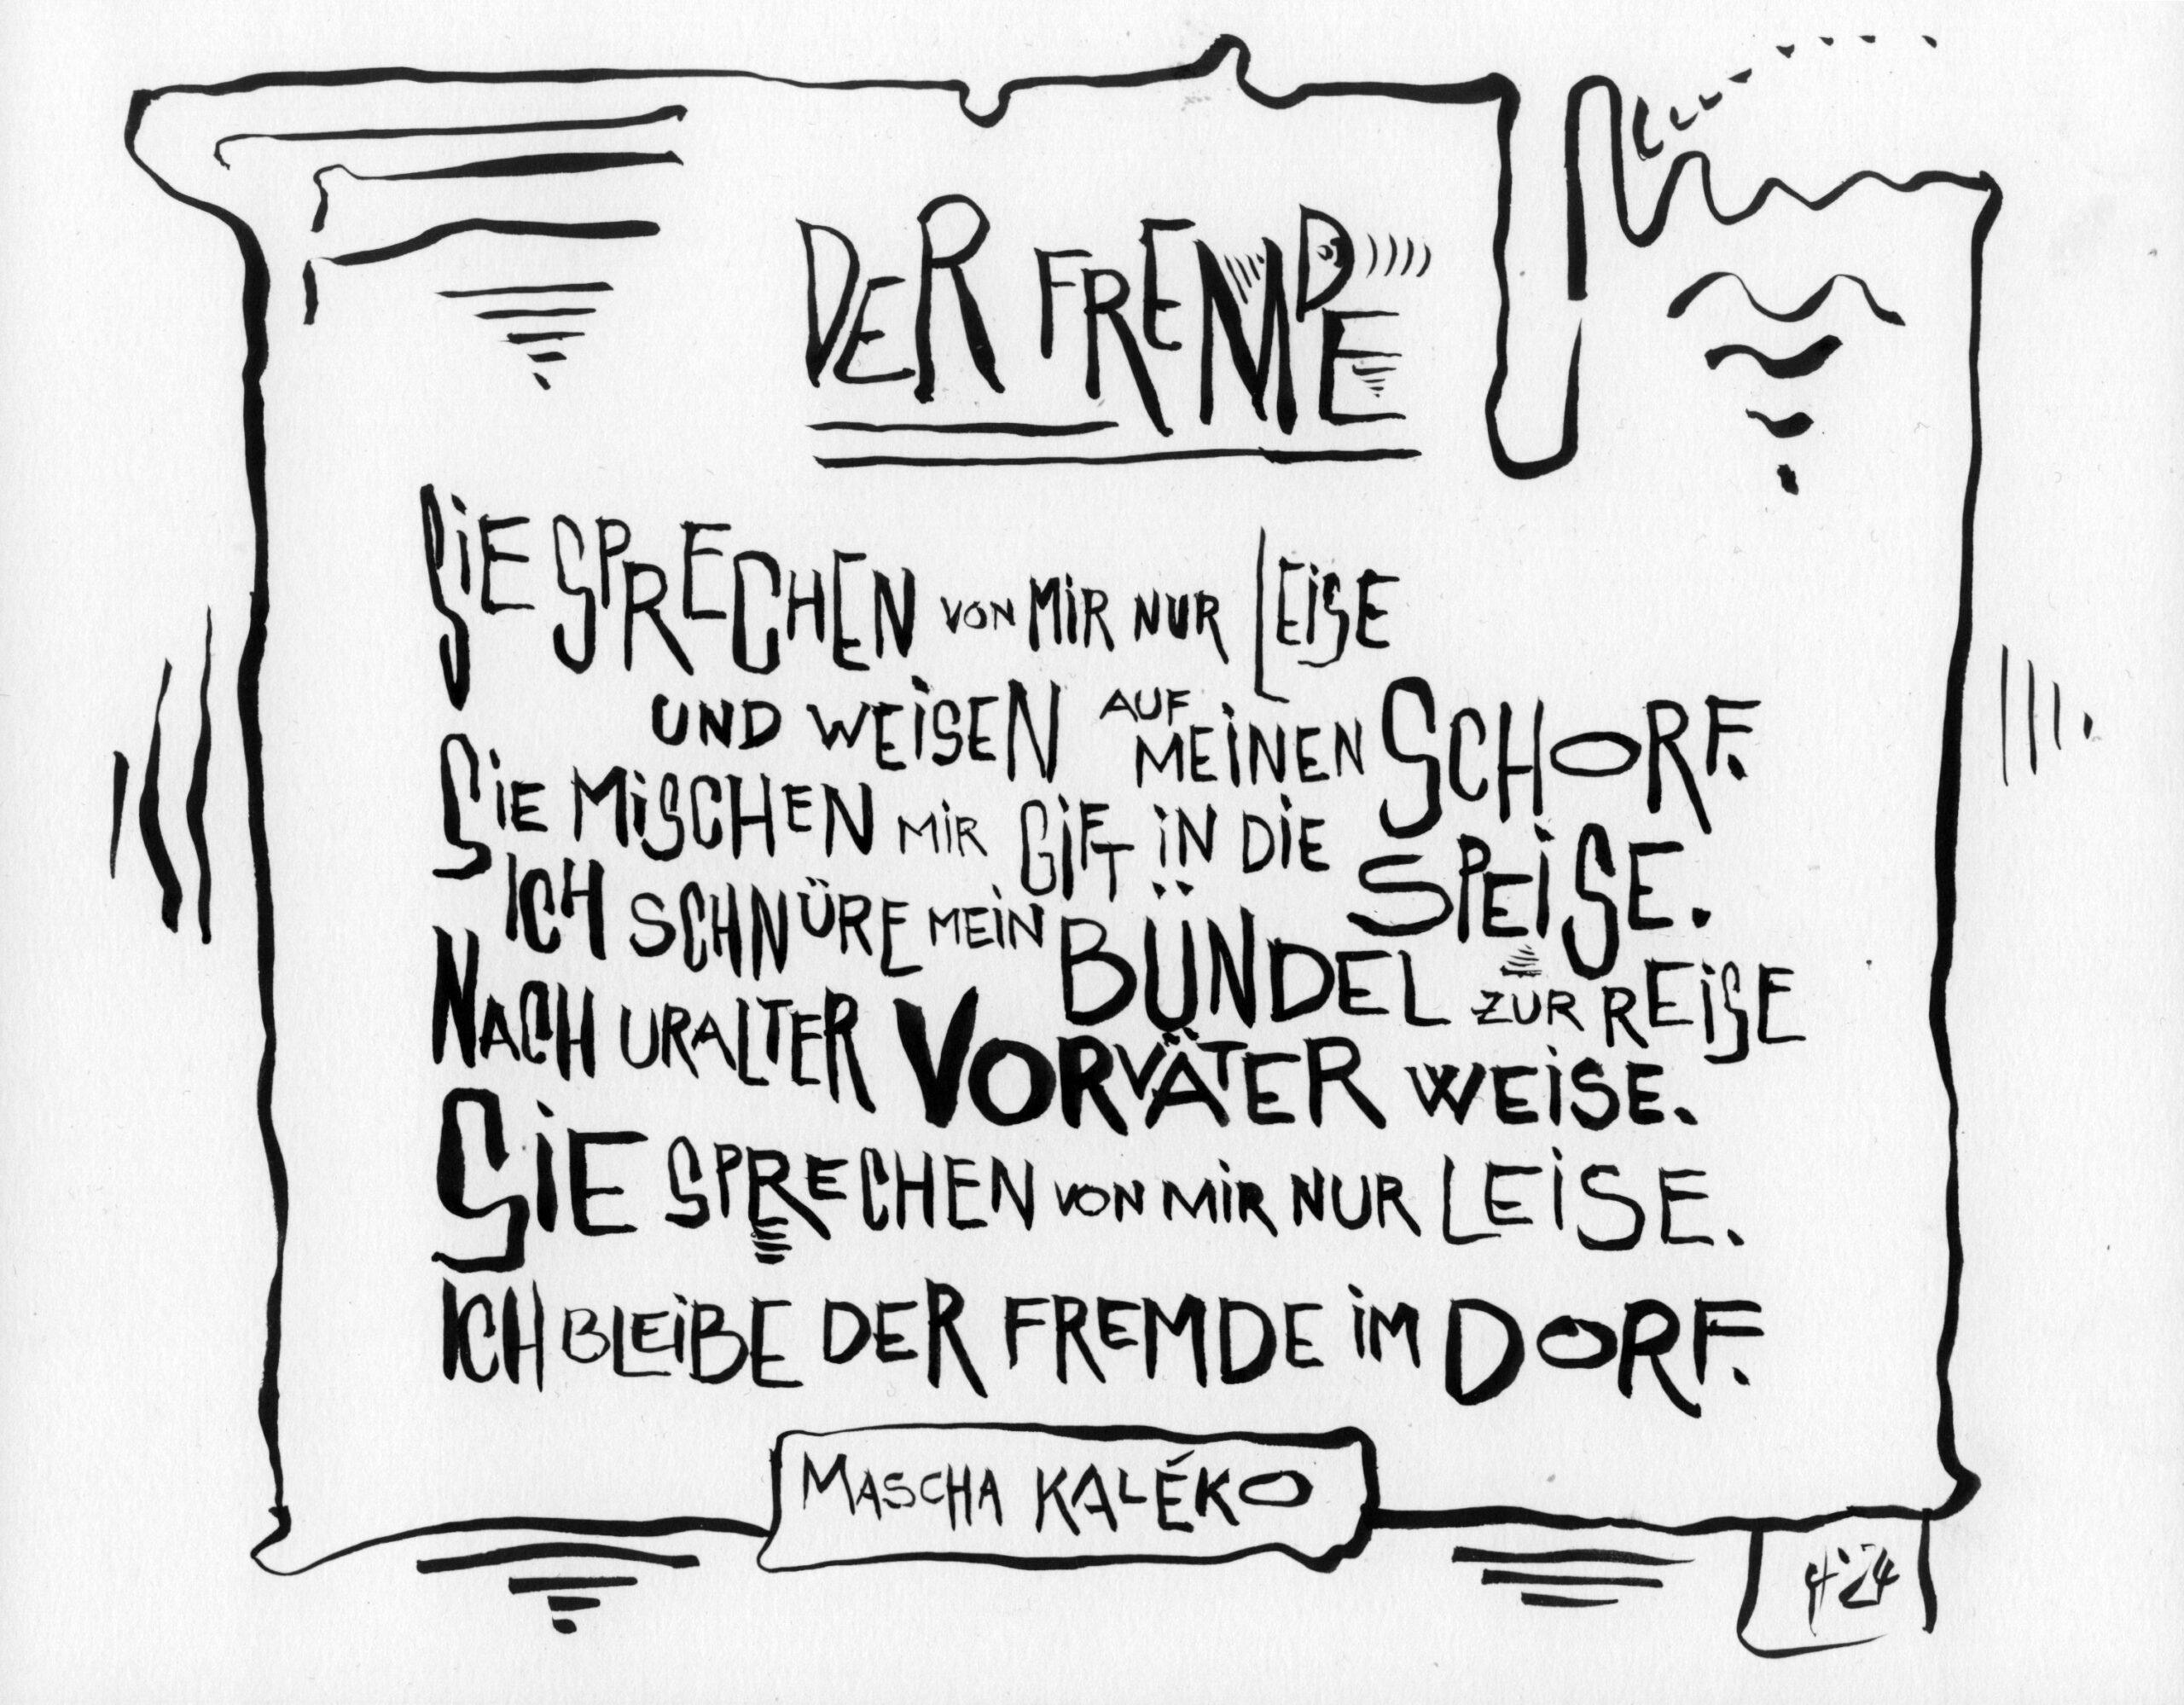 DER FREMDE
SIE SPRECHEN VON MIR NUR LEISE
UND WEISEN AUF MEINEN SCHORF.
SIE MISCHEN MIR GIFT IN DIE SPEISE.
ICH SCHNÜRE MEIN BÜNDEL ZUR REISE
NACH URALTER VORVÄTER WEISE.
SIE SPRECHEN VON MIR NUR LEISE.
ICH BLEIBE DER FREMDE IM DORF.
MASCHA KALÉKO
4'24